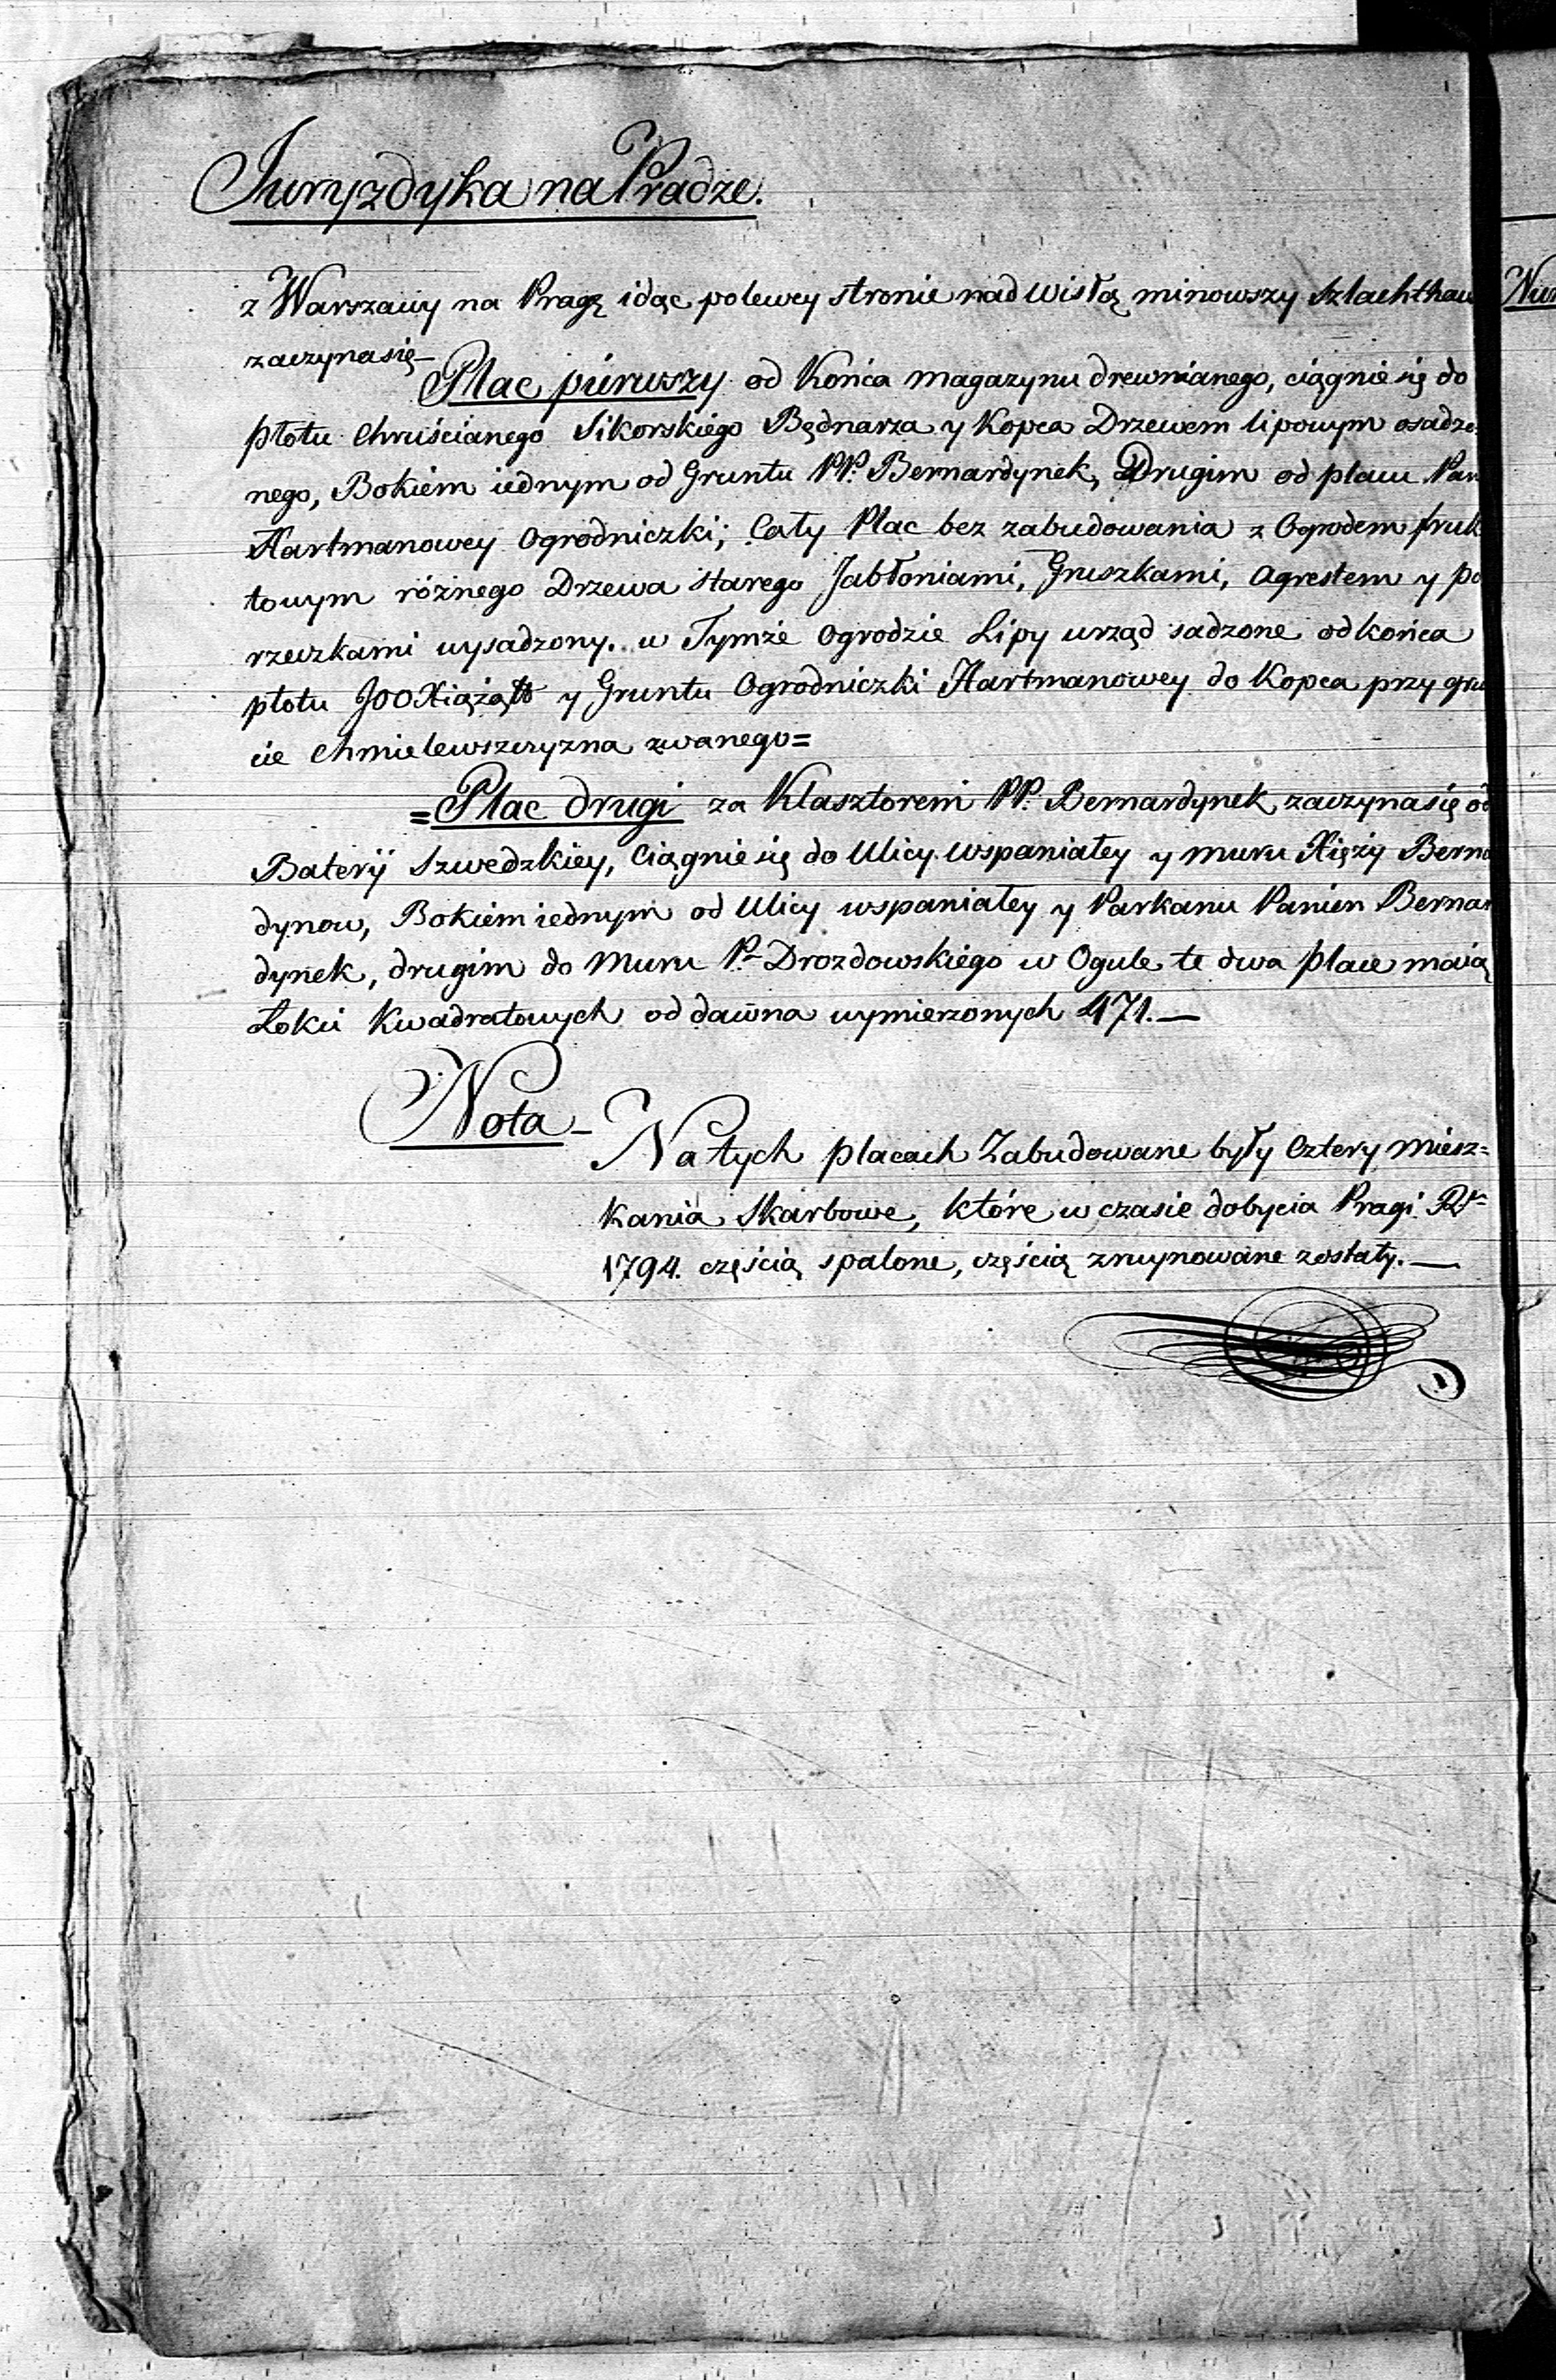 Juryzdyka na Pradze.
z Warszawy na Pragę idąc polewey stronie nad Wisłą minowszy Szlachthau
zaczyna się—
Plac pierwszy od Końca magazynu drewnianego, ciągnie się do
płotu Chruścianego Sikorskiego Będnarza y Kopca Drzewem lipowym osadzo-
nego, Bokiem iednym od Gruntu PP. Bernardynek, Drugim od placu Pan
Hartmanowey Ogrodniczki; Cały Plac bez zabudowania z Ogrodem fruk
towym różnego Drzewa starego Jabłoniami, Gruszkami, Agrestem y po
rzeczkami wysadzony. w Tymże Ogrodzie Lipy wrząd sadzone od końca
płotu JOO Xiążąt y Gruntu Ogrodniczki Hartmanowey do Kopca przy gru
cie Chmielewszczyzna zwanego=
=Plac drugi za Klasztorem PP. Bernardynek zaczyna się od
Bateryi Szwedzkiey, Ciągnie się do Ulicy Wspaniałey y muru Xięży Berna
dynow, Bokiem iednym od Ulicy wspaniałey y Parkanu Panien Bernar
dynek, drugim do Muru P. Drozdowskiego w Ogule te dwa place maią
Łokci Kwadratowych od dawna wymierzonych 471.—
Nota—
Na tych placach Zabudowane były Cztery miesz=
kania Skarbowe, które w czasie dobycia Pragi Rr
1794. częścią spalone, częścią zruynowane zostały.—